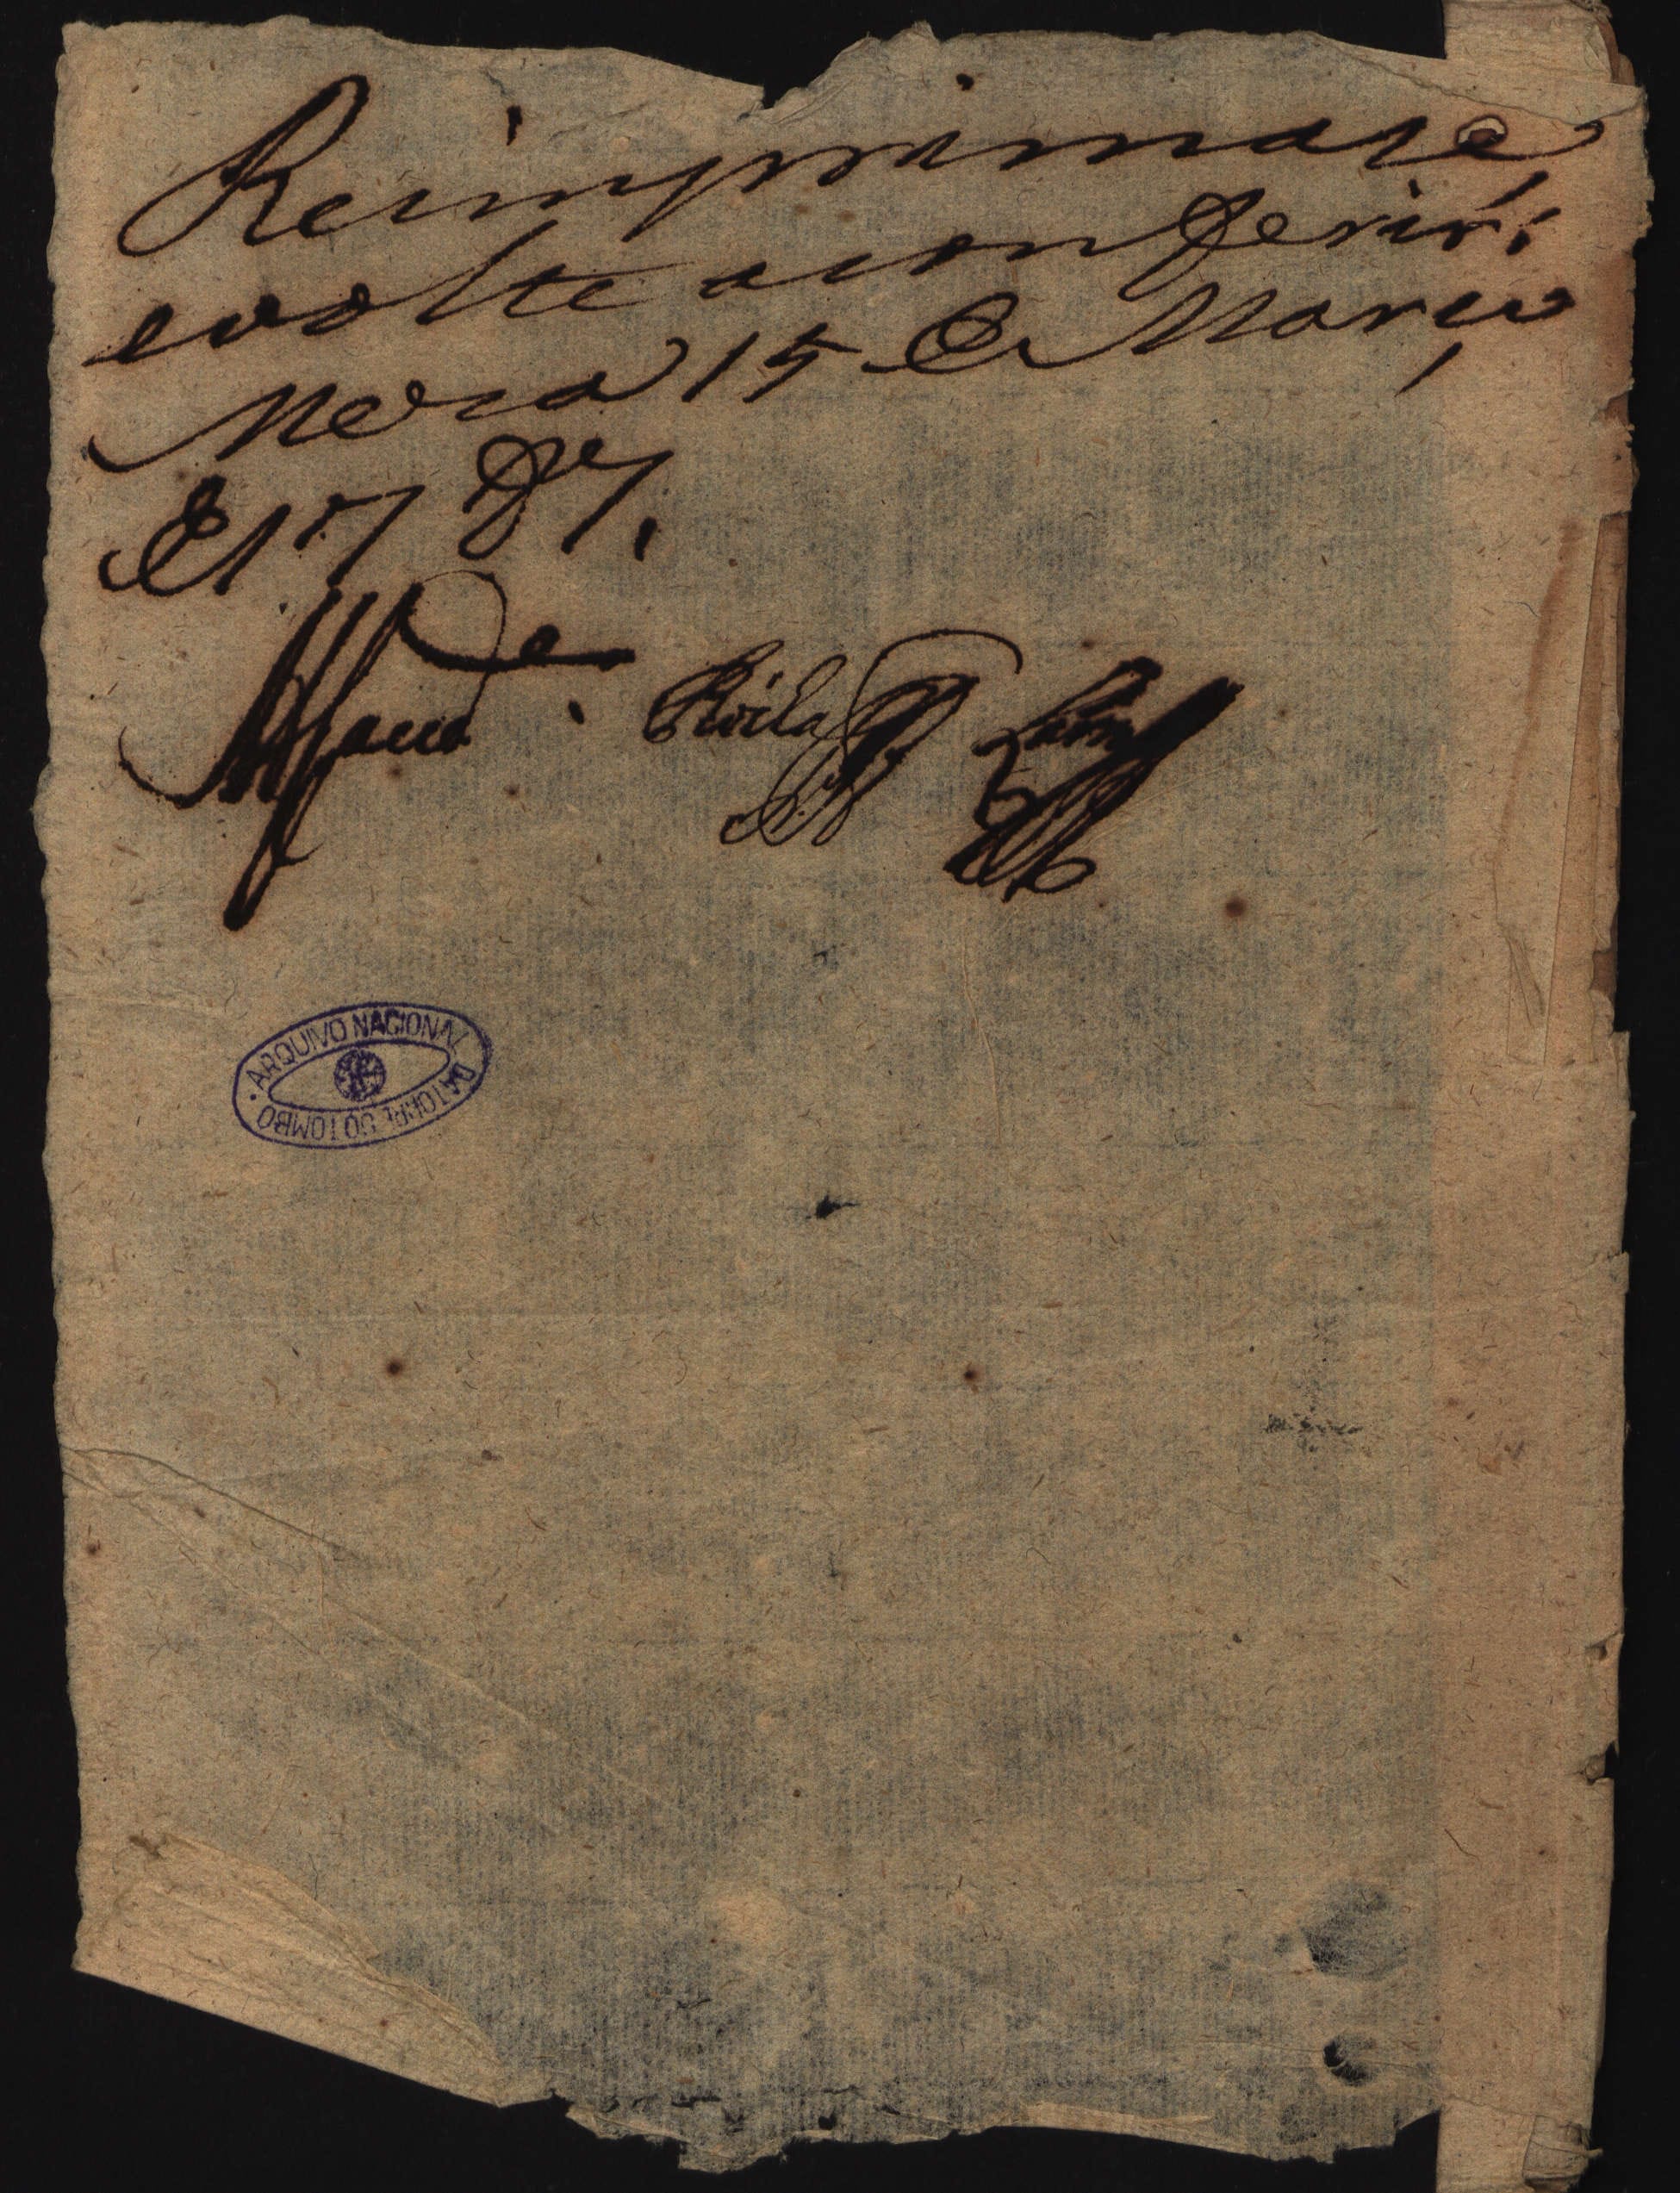 Reimprimase
evolte aconferir.
Meza 15 de Março
de 1787.
ARQUIVO NACIONAL DA TORRE DO TOMBO